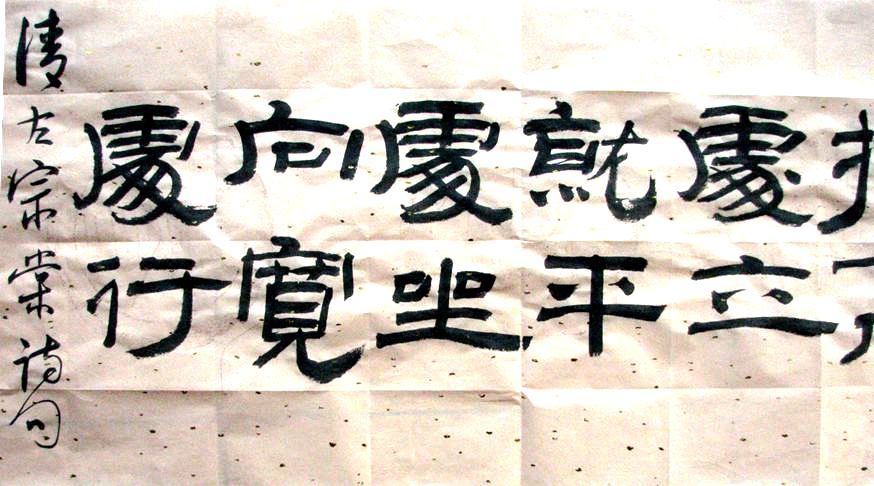 處立
就平
處坐
向寬
處行
清左宗棠诗句